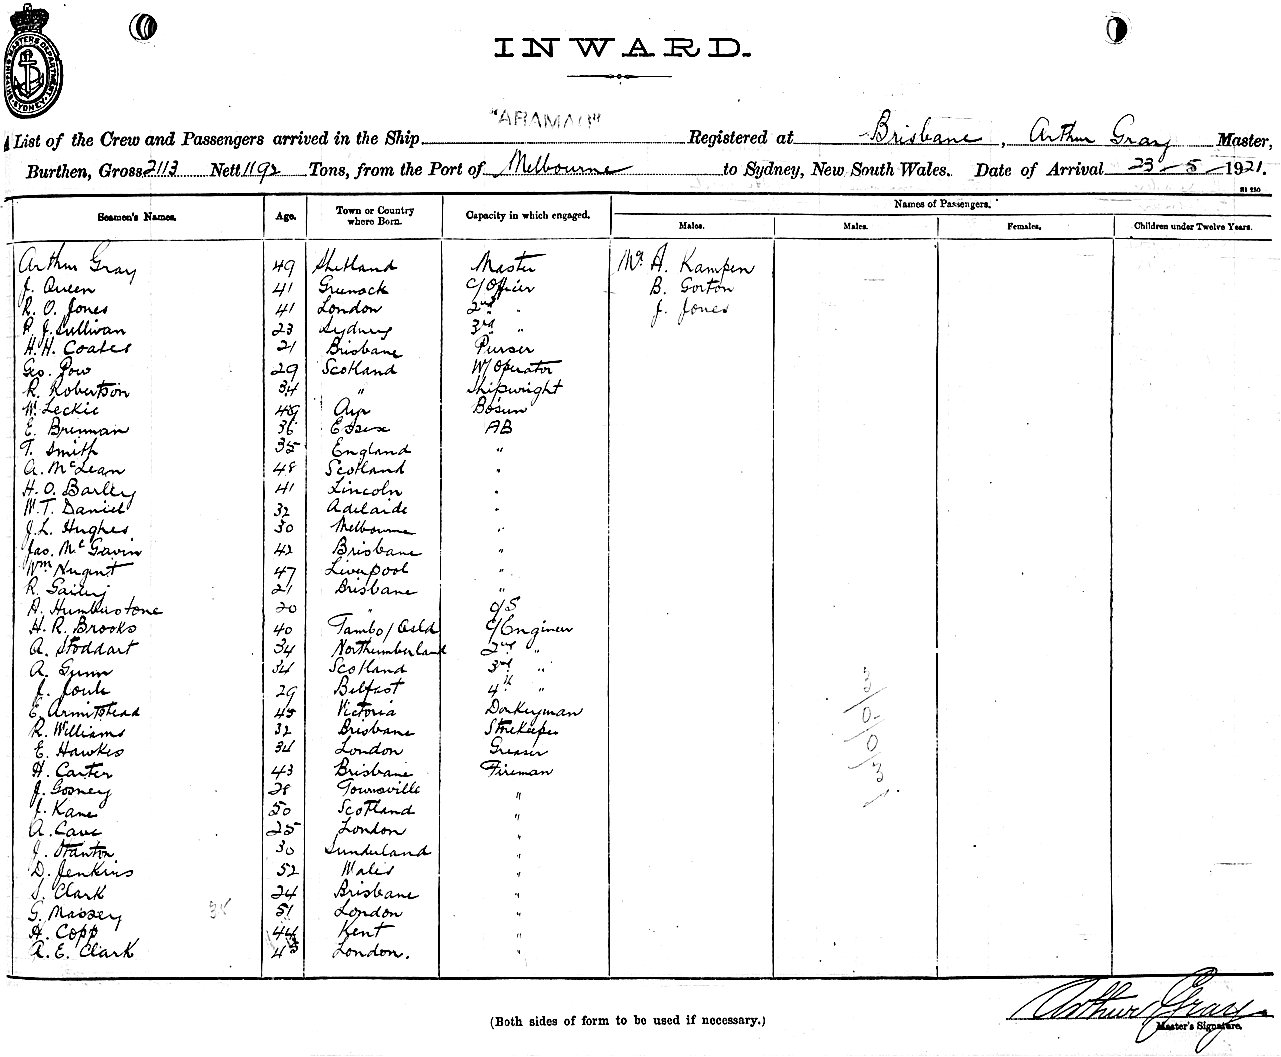 SHIPPING MASTERS DEPARTMENT SYDNEY
INWARD.
List of the Crew and Passengers arrived in the Ship "ARAMAC" Registered at Brisbane, Arthur Gray Master,
Burthen, Gross 2113 Nett 1192 Tons, from the Port of Melbourne to Sydney, New South Wales. Date of Arrival 23-5-1921.
Seamen's Names. Age. Town or Country where Born. Capacity in which engaged. Names of Passengers.
Males. Males. Females. Children under Twelve Years.
Arthur Gray 49 Shetland Master Mr. A. Kampen
J. Queen 41 Greenock C/Officer B. Gorton
R. O. Jones 41 London 2nd " J. Jones
R. J. Sullivan 23 Sydney 3rd "
H. H. Coates 21 Brisbane Purser
Geo. Pow 29 Scotland W/Operator
R. Robertson 34 " Shipwright
W. Leckie 49 Ayr Bosun
E. Brennan 36 Essex AB
T. Smith 35 England "
A. McLean 48 Scotland "
H. O. Barley 41 Lincoln "
W. T. Daniel 32 Adelaide "
J. L. Hughes 30 Melbourne "
Jas. McGavin 42 Brisbane "
Wm Nugent 47 Liverpool "
R. Gailey 21 Brisbane "
A. Humberstone 20 " O/S
H. R. Brooks 40 Tambo/Qsld C/Engineer
A. Stoddart 34 Northumberland 2nd "
A. Gunn 34 Scotland 3rd "
J. Joule 29 Belfast 4th "
E. Armitstead 45 Victoria Donkeyman
R. Williams 32 Brisbane Storekeeper
E. Hawkes 34 London Greaser
H. Carter 43 Brisbane Fireman
J. Gosney 28 Townsville "
J. Kane 50 Scotland "
A. Cave 25 London "
J. Stanton 30 Sunderland "
D. Jenkins 52 Wales "
S. Clark 24 Brisbane "
G. Massey 51 London "
H. Copp 44 Kent "
A. E. Clark London. "
(Both sides of form to be used if necessary.)
Arthur Gray
Master's Signature.